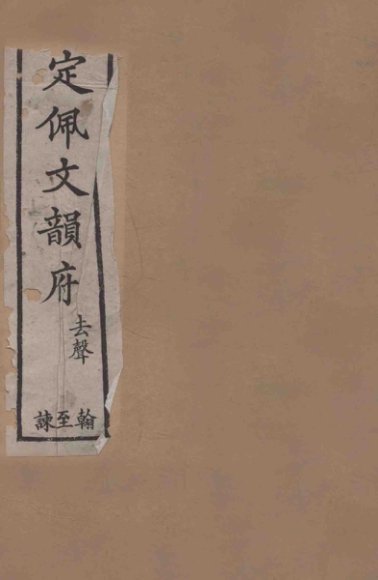 定佩文韻府
去聲
翰至諫